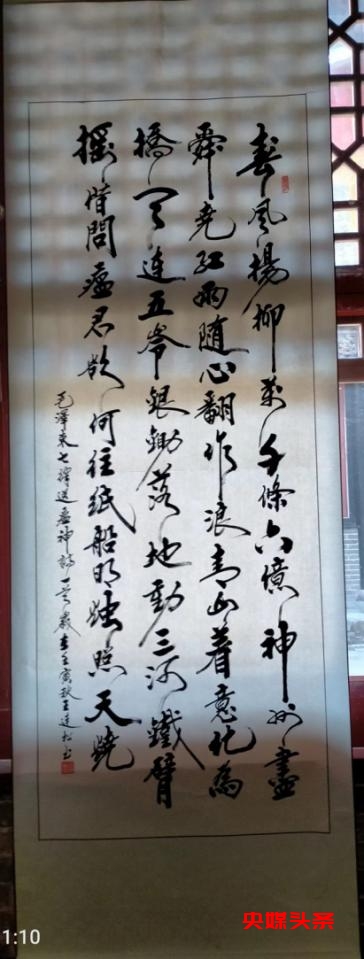 春風楊柳萬千條六億神州盡
舜堯紅雨随心翻作浪青山着意化為
橋天連五岺銀鋤落地動三河鐵臂
摇借問瘟君欲何往紙船明燭照天燒
毛澤東七律送瘟神詩一首歲在壬寅秋王廷松書
央媒头条
1:10